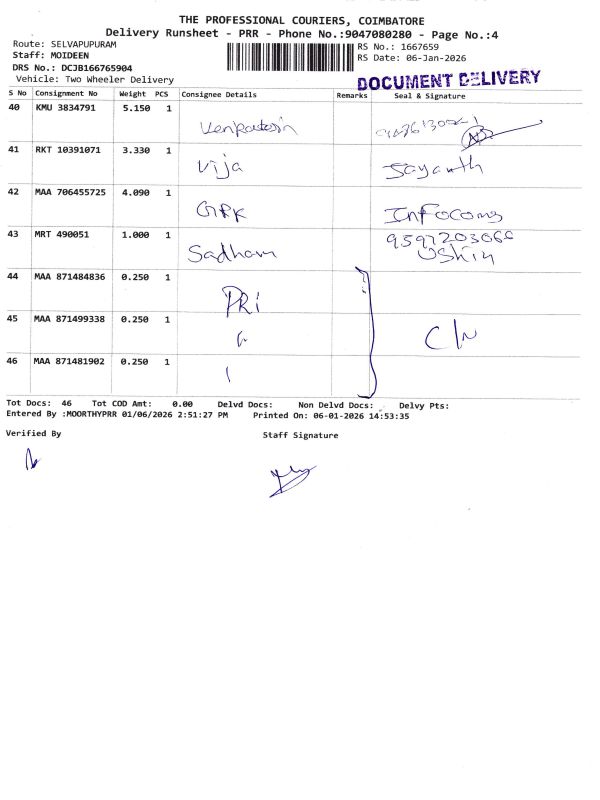 THE PROFESSIONAL COURIERS, COIMBATORE
Delivery Runsheet - PRR - Phone No.:9047080280 - Page No.:4
Route: SELVAPUPURAM
Staff: MOIDEEN
DRS No.: DCJB166765904
Vehicle: Two Wheeler Delivery
RS No.: 1667659
RS Date: 06-Jan-2026
DOCUMENT DELIVERY
S No Consignment No Weight PCS Consignee Details Remarks Seal & Signature
40 KMU 3834791 5.150 1
41 RKT 10391071 3.330 1 Vija
42 MAA 706455725 4.090 1 GPK Infocoms
43 MRT 490051 1.000 1 Sadham
44 MAA 871484836 0.250 1 PRI
45 MAA 871499338 0.250 1
46 MAA 871481902 0.250 1
Tot Docs: 46 Tot COD Amt: 0.00 Delvd Docs: Non Delvd Docs: Delvy Pts:
Entered By :MOORTHYPRR 01/06/2026 2:51:27 PM Printed On: 06-01-2026 14:53:35
Verified By Staff Signature